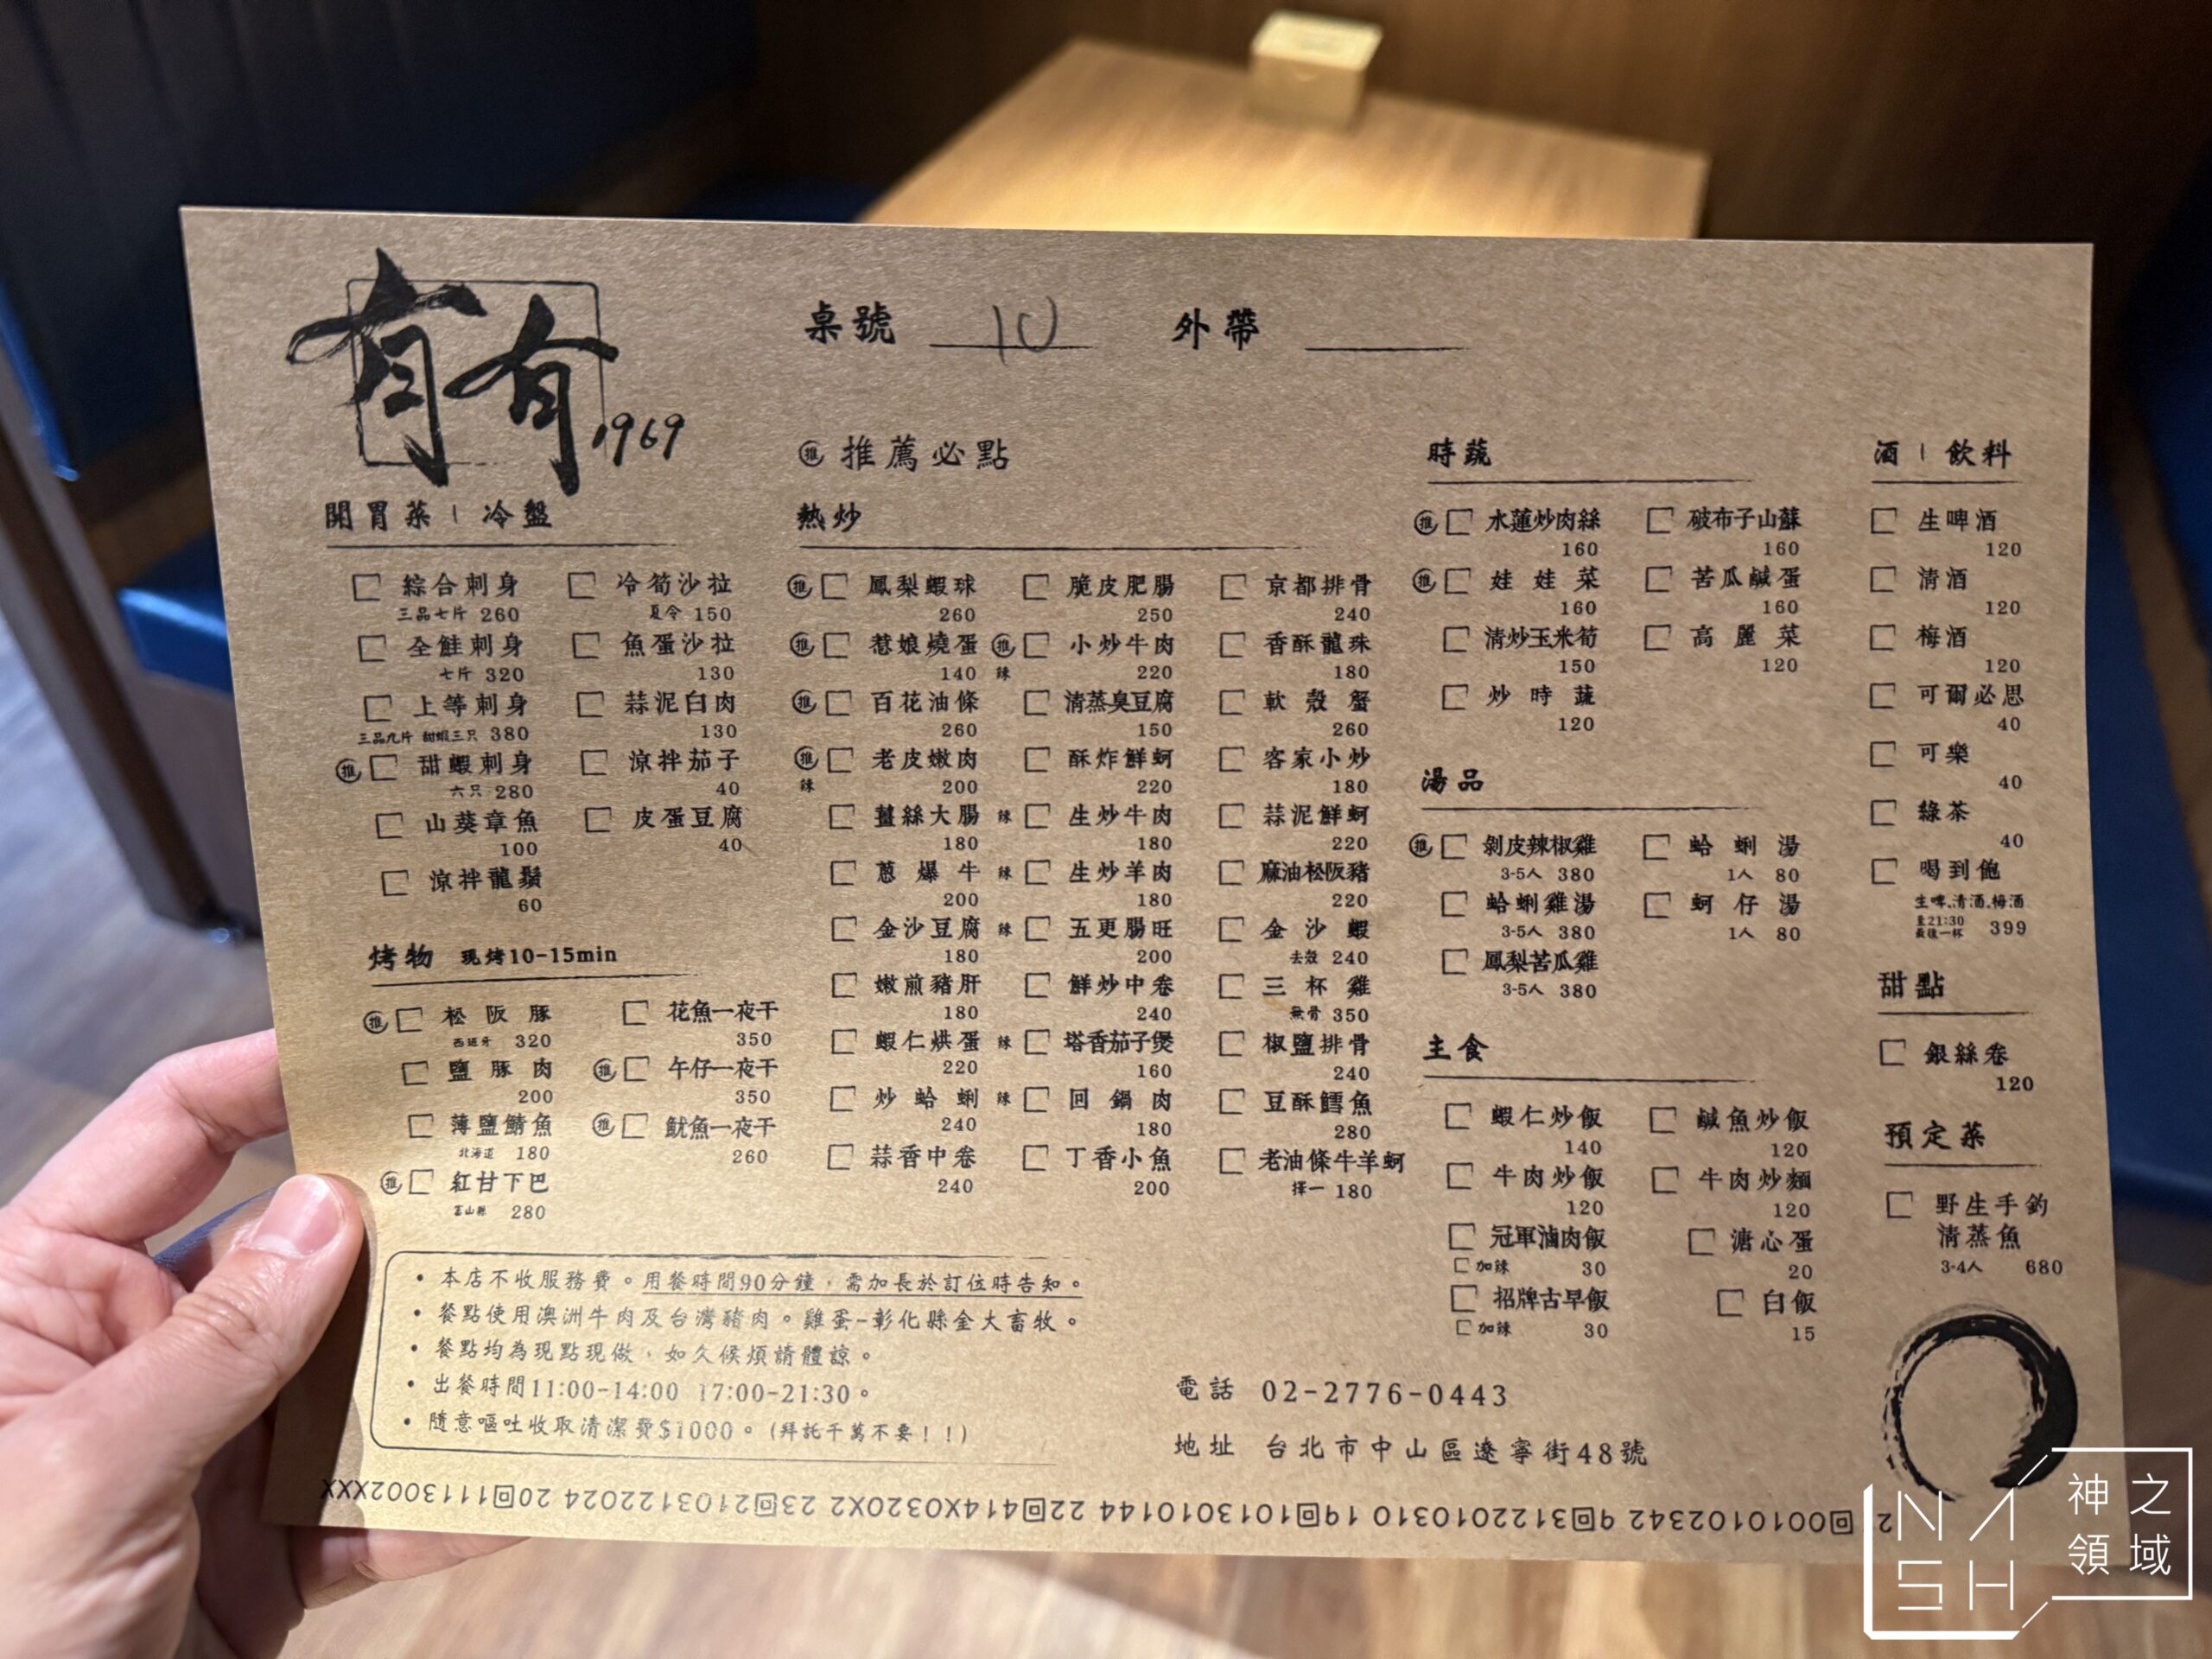 有有 1969
桌號 10 外帶
推 推薦必點
開胃菜 | 冷盤
綜合刺身
三品七片 260
全鮭刺身
七片 320
上等刺身
三品九片 甜蝦三只 380
推 甜蝦刺身
六只 280
山葵章魚
100
涼拌龍鬚
60
冷筍沙拉
夏令 150
魚蛋沙拉
130
蒜泥白肉
130
涼拌茄子
40
皮蛋豆腐
40
烤物 現烤10-15min
推 松阪豚
西班牙 320
鹽豚肉
200
薄鹽鯖魚
北海道 180
推 紅甘下巴
富山縣 280
花魚一夜干
350
推 午仔一夜干
350
推 魷魚一夜干
260
熱炒
推 鳳梨蝦球
260
推 惹娘燒蛋
140
推 百花油條
260
推 老皮嫩肉
辣 200
薑絲大腸
180
蔥爆牛
200
金沙豆腐
180
嫩煎豬肝
180
蝦仁烘蛋
220
炒蛤蜊
240
蒜香中卷
240
脆皮肥腸
250
推 小炒牛肉
辣 220
清蒸臭豆腐
150
酥炸鮮蚵
220
辣 生炒牛肉
180
辣 生炒羊肉
180
辣 五更腸旺
200
鮮炒中卷
240
辣 塔香茄子煲
160
辣 回鍋肉
180
丁香小魚
200
京都排骨
240
香酥龍珠
180
軟殼蟹
260
客家小炒
180
蒜泥鮮蚵
220
麻油松阪豬
220
金沙蝦
去殼 240
三杯雞
無骨 350
椒鹽排骨
240
豆酥鱈魚
280
老油條牛羊蚵
擇一 180
時蔬
推 水蓮炒肉絲
160
推 娃娃菜
160
清炒玉米筍
150
炒時蔬
120
破布子山蘇
160
苦瓜鹹蛋
160
高麗菜
120
湯品
推 剝皮辣椒雞
3-5人 380
蛤蜊雞湯
3-5人 380
鳳梨苦瓜雞
3-5人 380
蛤蜊湯
1人 80
蚵仔湯
1人 80
主食
蝦仁炒飯
140
牛肉炒飯
120
冠軍滷肉飯
加辣 30
招牌古早飯
加辣 30
鹹魚炒飯
120
牛肉炒麵
120
溏心蛋
20
白飯
15
酒 | 飲料
生啤酒
120
清酒
120
梅酒
120
可爾必思
40
可樂
40
綠茶
40
喝到飽
生啤.清酒.梅酒
至21:30
最後一杯 399
甜點
銀絲卷
120
預定菜
野生手釣
清蒸魚
3-4人 680
• 本店不收服務費。用餐時間90分鐘，需加長於訂位時告知。
• 餐點使用澳洲牛肉及台灣豬肉。雞蛋-彰化縣金大畜牧。
• 餐點均為現點現做，如久候煩請體諒。
• 出餐時間11:00-14:00 17:00-21:30。
• 隨意嘔吐收取清潔費$1000。(拜託千萬不要！！)
電話 02-2776-0443
地址 台北市中山區遼寧街48號
NASH
神之
領域